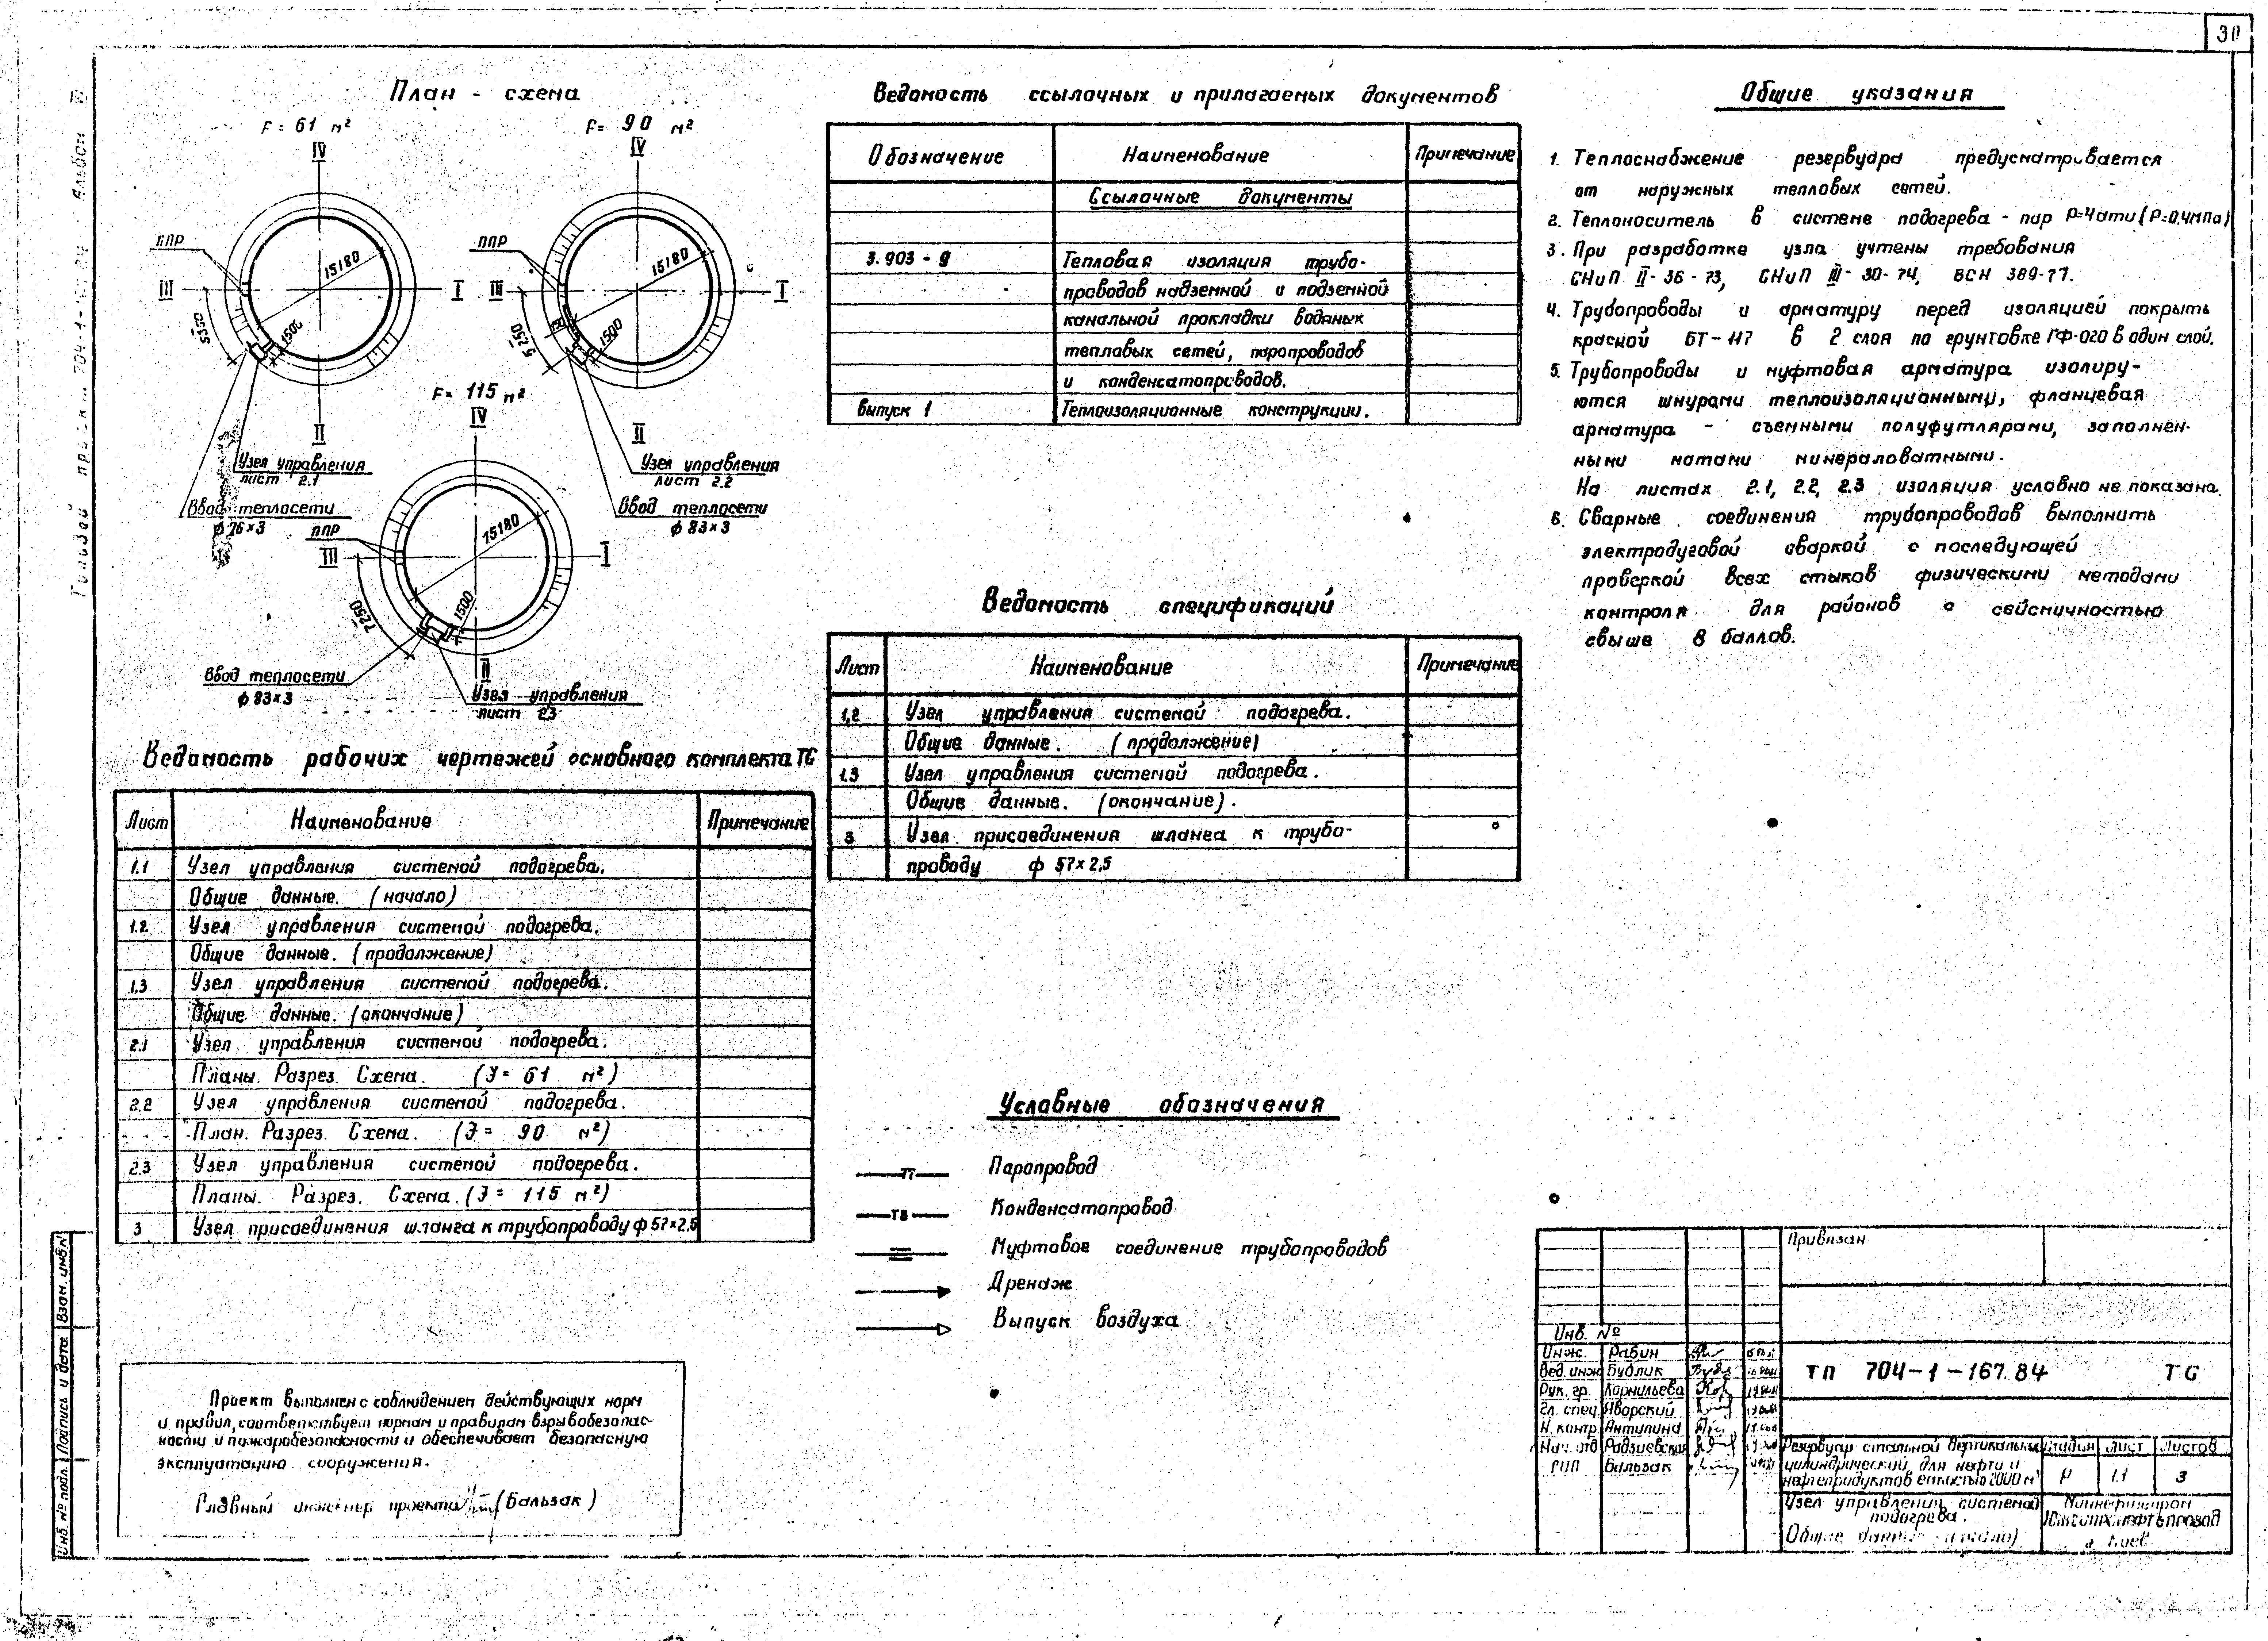 30
План - схема
F= 61 м²
IV
ППР
15180
III
I
5350
1500
II
Узел управления
лист 2.1
Ввод теплосети
ф 76×3
F= 90 м²
IV
ППР
15180
III
I
5250
1500
II
Узел управления
лист 2.2
Ввод теплосети
ф 83×3
F= 115 м²
IV
ППР
15180
III
I
7250
1500
II
Ввод теплосети
ф 83×3
Узел управления
лист 2.3
Ведомость рабочих чертежей основного комплекта ТС
Лист Наименование Примечание
1.1 Узел управления системой подогрева.
Общие данные. (начало)
1.2 Узел управления системой подогрева.
Общие данные. (продолжение)
1.3 Узел управления системой подогрева.
Общие данные. (окончание)
2.1 Узел управления системой подогрева.
Планы. Разрез. Схема. (F= 61 м²)
2.2 Узел управления системой подогрева.
План. Разрез. Схема. (F= 90 м²)
2.3 Узел управления системой подогрева.
Планы. Разрез. Схема. (F= 115 м²)
3 Узел присоединения шланга к трубопроводу ф 57×2,5
Проект выполнен с соблюдением действующих норм
и правил, соответствует нормам и правилам взрывобезопас-
ности и пожаробезопасности и обеспечивает безопасную
эксплуатацию сооружения.
Главный инженер проекта (Бальзак)
Ведомость ссылочных и прилагаемых документов
Обозначение Наименование Примечание
Ссылочные документы
3.903 - 9 Тепловая изоляция трубо-
проводов надземной и подземной
канальной прокладки водяных
тепловых сетей, паропроводов
и конденсатопроводов.
выпуск 1 Теплоизоляционные конструкции.
Ведомость спецификаций
Лист Наименование Примечание
1.2 Узел управления системой подогрева.
Общие данные. (продолжение)
1.3 Узел управления системой подогрева.
Общие данные. (окончание).
3 Узел присоединения шланга к трубо-
проводу ф 57×2,5
Условные обозначения
Т7 Паропровод
Т8 Конденсатопровод
Муфтовое соединение трубопроводов
Дренаж
Выпуск воздуха
Общие указания
1. Теплоснабжение резервуара предусматривается
от наружных тепловых сетей.
2. Теплоноситель в системе подогрева - пар Р=4ати (Р=0,4мПа)
3. При разработке узла учтены требования
СНиП II-36-73, СНиП III-30-74, ВСН 389-77.
4. Трубопроводы и арматуру перед изоляцией покрыть
краской БТ-177 в 2 слоя по грунтовке ГФ-020 в один слой.
5. Трубопроводы и муфтовая арматура изолиру-
ются шнурами теплоизоляционными, фланцевая
арматура - съемными полуфутлярами, заполнен-
ными матами минераловатными.
На листах 2.1, 2.2, 2.3 изоляция условно не показана.
6. Сварные соединения трубопроводов выполнить
электродуговой сваркой с последующей
проверкой всех стыков физическими методами
контроля для районов с сейсмичностью
свыше 8 баллов.
Привязан
Инв. №
Инж. Рабин
Вед. инж Будлик
Рук. гр. Корнильева
Гл. спец. Яворский
Н. контр. Антипина
Нач. отд Радзиевская
ГИП Бальзак
ТП 704-1-167.84 ТС
Резервуар стальной вертикальный
цилиндрический для нефти и
нефтепродуктов емкостью 2000 м³
Стадия Лист Листов
Р 1.1 3
Узел управления системой
подогрева.
Общие данные (начало)
Миннефтепром
Южгипронефтепровод
г. Киев
Типовой проект 704-1-167.84 Альбом
Взам. инв. №
Подпись и дата
Инв. № подл.